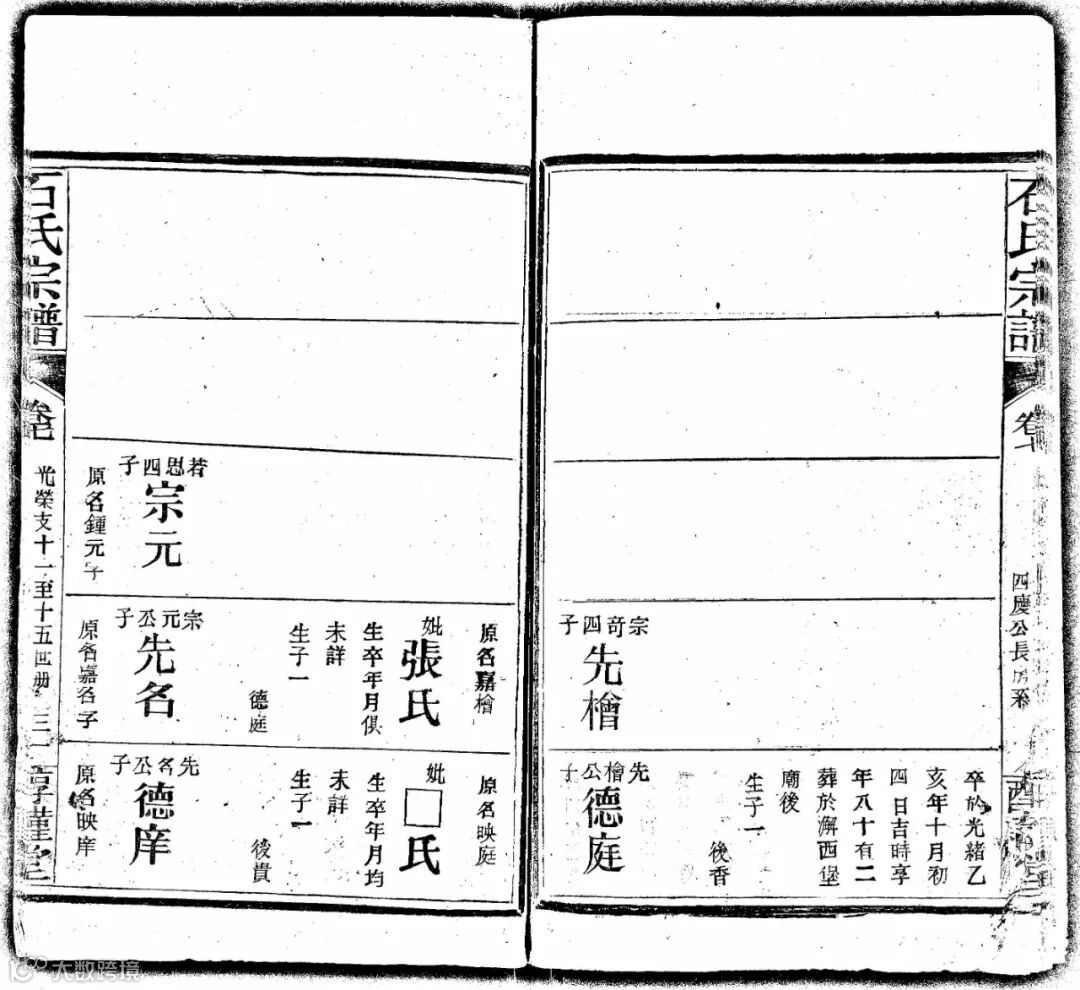 石氏宗譜
卷七
四慶公長房系
宗奇四子
先檜
卒於光緒乙
亥年十月初
四日吉時享
年八十有二
葬於澥西堡
廟後
生子一
後香
先檜公子
德庭
若恩四子
宗元
原名鍾元字
原名嘉檜
妣
張氏
生卒年月俱
未詳
生子一
德庭
宗元公子
先名
原名嘉名字
原名映庭
妣
□氏
生卒年月均
未詳
生子一
後貴
先名公子
德庠
原名映庠
石氏宗譜
卷七
光榮支十一至十五世册
三一
大数跨境